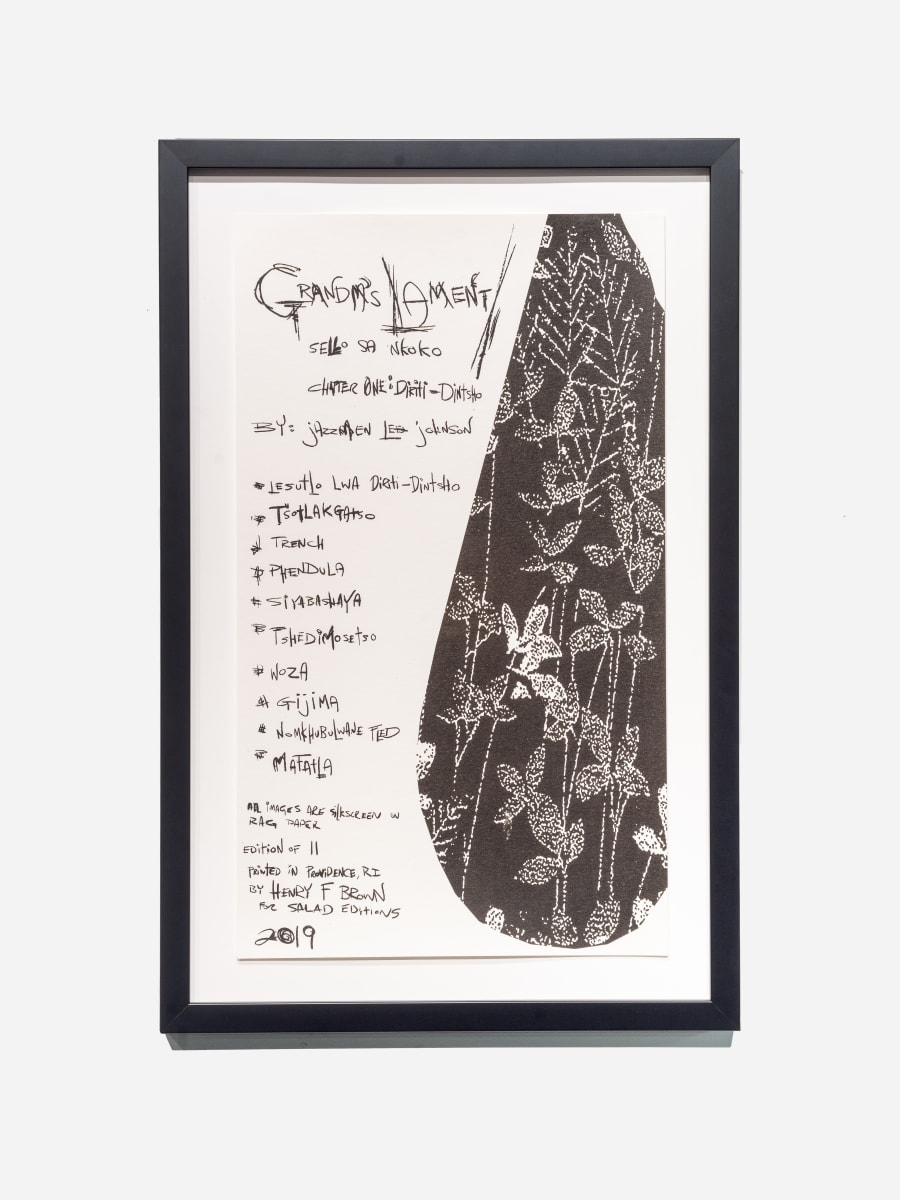 GRANDMA'S LAMENT
SELLO SA NKOKO
CHAPTER ONE: DIRITI-DINTSHO
BY: JAZZMEN LEE JOHNSON
# LESUTLO LWA DIRITI-DINTSHO
# TSOTLAKGATSO
# TRENCH
# PHENDULA
# SIYABASHAYA
# TSHEDIMOSETSO
# WOZA
# GIJIMA
# NOMKHUBULWANE FLED
# MAFATLA
ALL IMAGES ARE SILKSCREEN W
RAG PAPER
EDITION OF 11
PRINTED IN PROVIDENCE, RI
BY HENRY F BROWN
FOR SALAD EDITIONS
2019